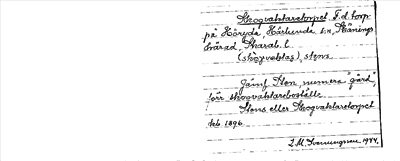 Skogvaktaretorpet F.d. torp
på Höryda, Härlunda sn, Skånings
härad, Skarab. l.
(skògvaktas), stens
Jämf. Sten numera "gård",
förr skogvaktareboställe.
Stens eller Skogvaktaretorpet
teb. 1896.
1944.